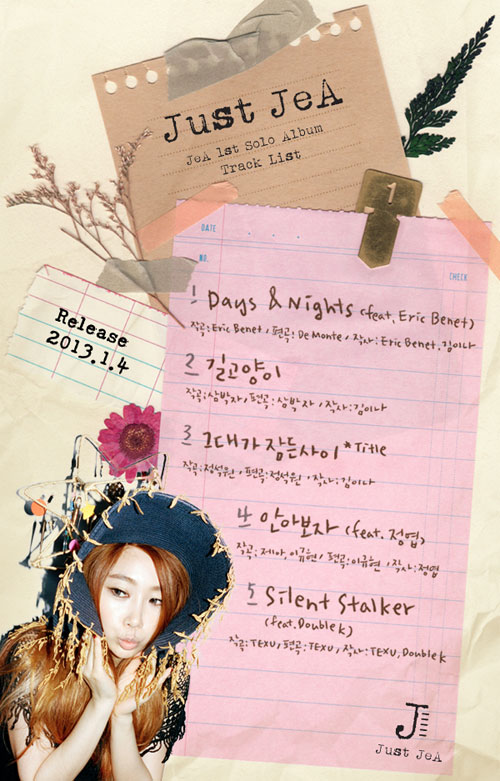 Just JeA
JeA 1st Solo Album
Track List
1
DATE
NO.
CHECK
Release
2013.1.4
1 Days & Nights (feat. Eric Benet)
작곡: Eric Benet / 편곡: De Monte / 작사: Eric Benet, 김이나
2 길고양이
작곡: 삼박자 / 편곡: 삼박자 / 작사: 김이나
3 그대가 잠든사이 *Title
작곡: 정석원 / 편곡: 정석원 / 작사: 김이나
4 안아보자 (feat. 정엽)
작곡: 제아, 이규현 / 편곡: 이규현 / 작사: 정엽
5 Silent Stalker
(feat. Double k)
작곡: TEXU, 편곡: TEXU, 작사: TEXU, Double k
J
Just JeA